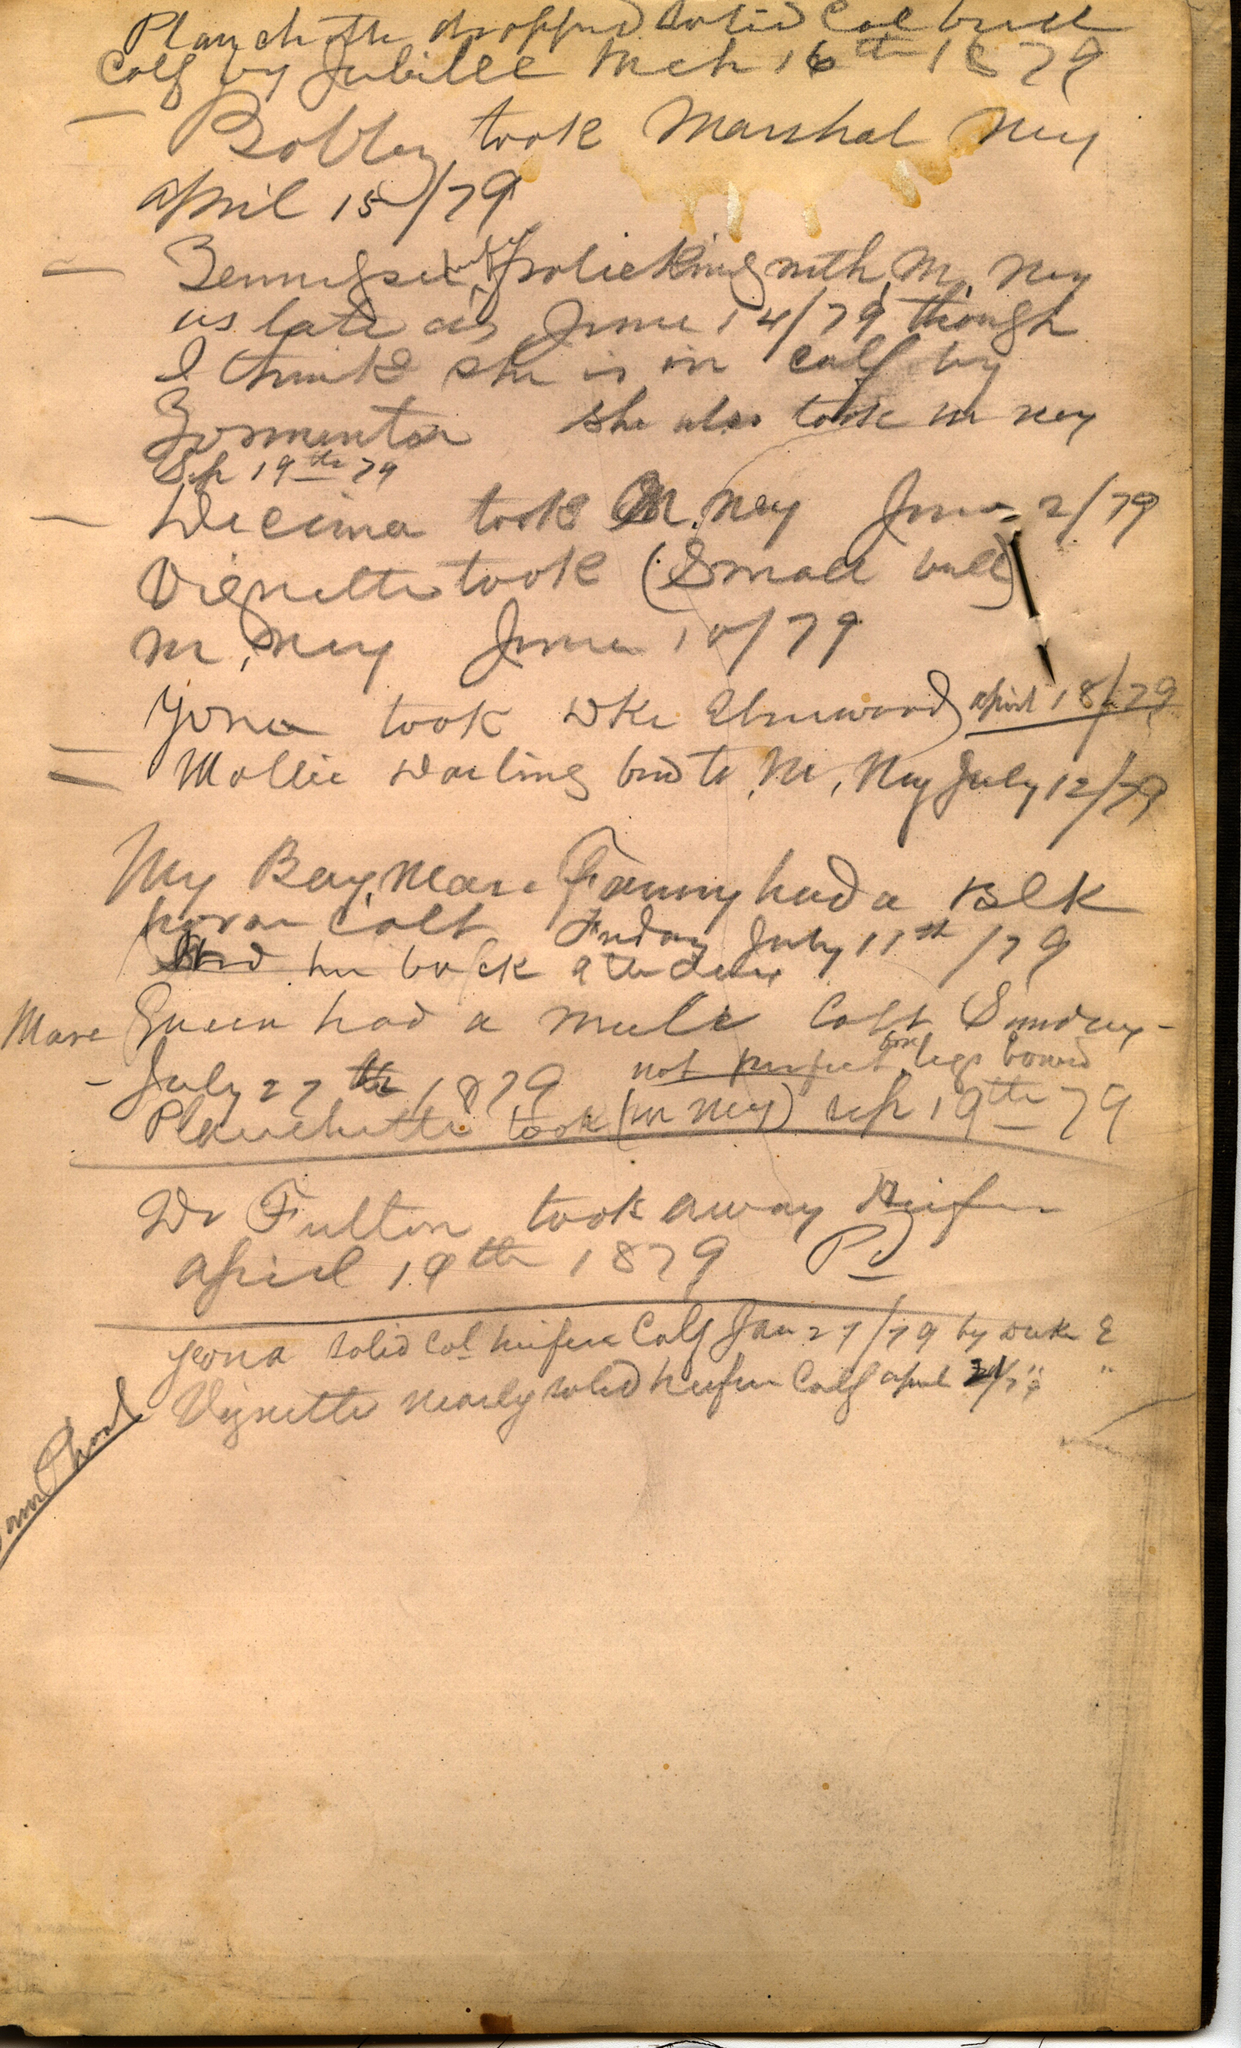 Planchette dropped solid Col bull
Calf by Jubilee Mch 16th 1879
— Bobbey took Marshal Ney
april 15/79
— frolicking with M. Ney
as late as June 14/79 though
I think she is in calf by
Tormentor she also took M Ney
Sep 19th 79
— Decima took M. Ney June 2/79
Vignette took (Small bull)
M. Ney June 10/79
Yona took Dke Elmwood april 18/79
= Mollie Darling bred to M. Ney July 12/79
My Bay Mare Fanny had a Blk
horse Colt Friday July 11th /79
her back
Mare Queen had a mule Colt Sunday –
– July 27th 1879 not perfect fore legs bowed
Planchette took (M Ney) Sep 19th 79
Dr Fulton took away Heifer
april 19th 1879 Pd
Yona solid Col heifer Calf Jan 27/79 by Duke E
Vignette nearly solid heifer Calf april " "